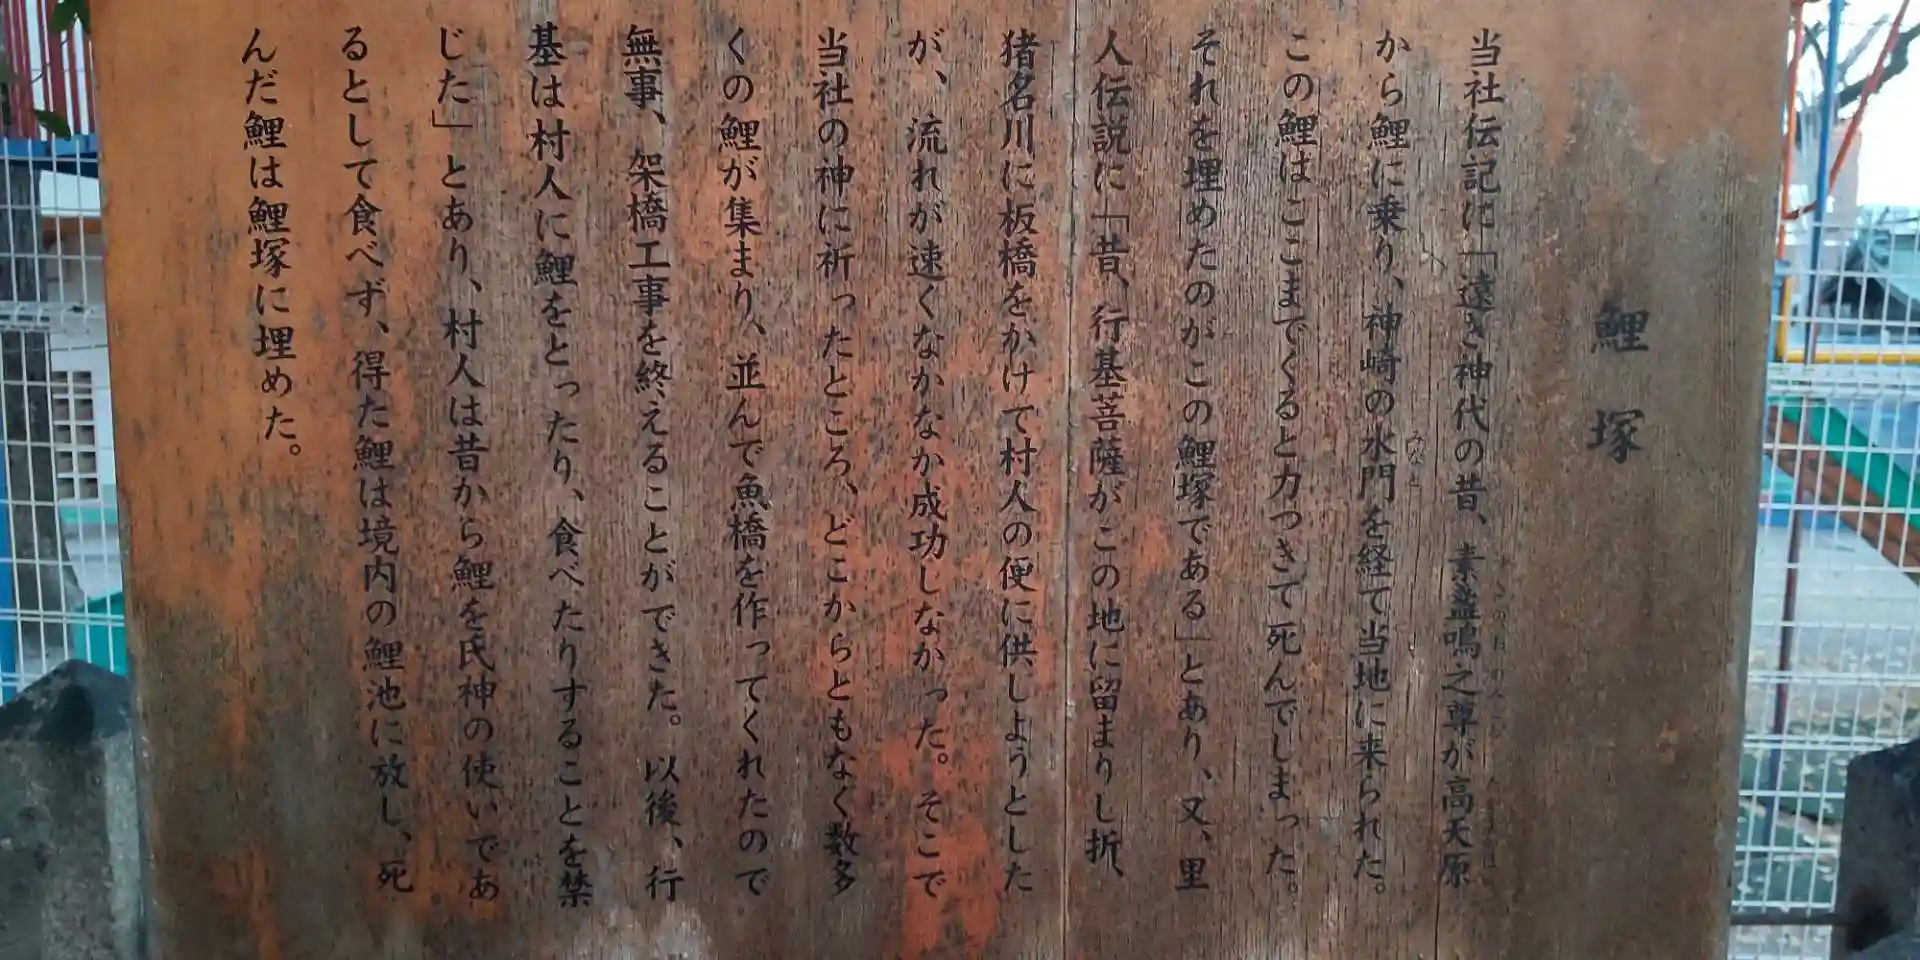 鯉塚
当社伝記に「遠き神代の昔、素盞嗚之尊が高天原
から鯉に乗り、神崎の水門を経て当地に来られた。
みなと
この鯉はここまでくると力つきて死んでしまった。
それを埋めたのがこの鯉塚である」とあり、又、里
人伝説に「昔、行基菩薩がこの地に留まりし折、
猪名川に板橋をかけて村人の便に供しようとした
が、流れが速くなかなか成功しなかった。そこで
当社の神に祈ったところ、どこからともなく数多
くの鯉が集まり、並んで魚橋を作ってくれたので
無事、架橋工事を終えることができた。以後、行
基は村人に鯉をとったり、食べたりすることを禁
じた」とあり、村人は昔から鯉を氏神の使いであ
るとして食べず、得た鯉は境内の鯉池に放し、死
んだ鯉は鯉塚に埋めた。